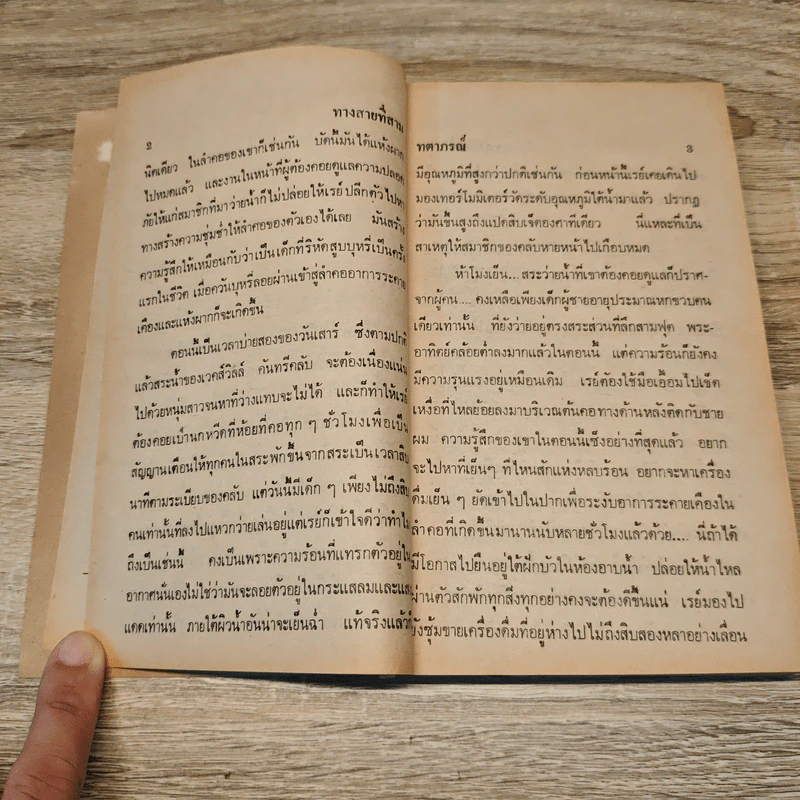 2 ทางสายที่สาม
นิดเดียว ในลำคอของเขาก็เช่นกัน บัดนี้มันได้แห้งผาก
ไปหมดแล้ว และงานในหน้าที่ผู้ต้องคอยดูแลความปลอด
ภัยให้แก่สมาชิกที่มาว่ายน้ำก็ไม่ปล่อยให้เรย์ ปลีกตัวไปหา
ทางสร้างความชุ่มช่ำให้ลำคอของตัวเองได้เลย มันสร้าง
ความรู้สึกให้เหมือนกับว่าเป็นเด็กที่ริหัดสูบบุหรี่เป็นครั้ง
แรกในชีวิต เมื่อควันบุหรี่ลอยผ่านเข้าสู่ลำคออาการระคาย
เคืองและแห้งผากก็จะเกิดขึ้น
ตอนนี้เป็นเวลาบ่ายสองของวันเสาร์ ซึ่งตามปกติ
แล้วสระน้ำของเวคส์วิลล์ คันทรีคลับ จะต้องเนื่องแน่น
ไปด้วยหนุ่มสาวจนหาที่ว่างแทบจะไม่ได้ และก็ทำให้เรย์
ต้องคอยเป่านกหวีดที่ห้อยที่คอทุก ๆ ชั่วโมงเพื่อเป็น
สัญญานเตือนให้ทุกคนในสระพักขึ้นจากสระเป็นเวลาสิบ
นาทีตามระเบียบของคลับ แต่วันนี้มีเด็ก ๆ เพียงไม่ถึงสิบ
คนเท่านั้นที่ลงไปแหวกว่ายเล่นอยู่แต่เรย์ก็เข้าใจดีว่าทำไม
ถึงเป็นเช่นนี้ คงเป็นเพราะความร้อนที่แทรกตัวอยู่ใน
อากาศนั่นเองไม่ใช่ว่ามันจะลอยตัวอยู่ในกระแสลมและแส
แดดเท่านั้น ภายใต้ผิวน้ำอันน่าจะเย็นฉ่ำ แท้จริงแล้วก็
ทตาภรณ์ 3
มีอุณหภูมิที่สูงกว่าปกติเช่นกัน ก่อนหน้านี้เรย์เคยเดินไป
มองเทอร์โมมิเตอร์วัดระดับอุณหภูมิใต้น้ำมาแล้ว ปรากฏ
ว่ามันขึ้นสูงถึงแปดสิบเจ็ดองศาทีเดียว นี่แหละที่เป็น
สาเหตุให้สมาชิกของคลับหายหน้าไปเกือบหมด
ห้าโมงเย็น... สระว่ายน้ำที่เขาต้องคอยดูแลก็ปราศ-
จากผู้คน... คงเหลือเพียงเด็กผู้ชายอายุประมาณหกขวบคน
เดียวเท่านั้น ที่ยังว่ายอยู่ตรงสระส่วนที่ลึกสามฟุต พระ-
อาทิตย์คล้อยต่ำลงมากแล้วในตอนนี้ แต่ความร้อนก็ยังคง
มีความรุนแรงอยู่เหมือนเดิม เรย์ต้องใช้มือเอื้อมไปเช็ด
เหงื่อที่ไหลย้อยลงมาบริเวณต้นคอทางด้านหลังติดกับชาย
ผม ความรู้สึกของเขาในตอนนี้เซ็งอย่างที่สุดแล้ว อยาก
จะไปหาที่เย็นๆ ที่ไหนสักแห่งหลบร้อน อยากจะหาเครื่อง
ดื่มเย็น ๆ ยัดเข้าไปในปากเพื่อระงับอาการระคายเคืองใน
ลำคอที่เกิดขึ้นมานานนับหลายชั่วโมงแล้วด้วย.... นี่ถ้าได้
มีโอกาสไปยืนอยู่ใต้ฝักบัวในห้องอาบน้ำ ปล่อยให้น้ำไหล
ผ่านตัวสักพักทุกสิ่งทุกอย่างคงจะต้องดีขึ้นแน่ เรย์มองไป
ยังซุ้มขายเครื่องดื่มที่อยู่ห่างไปไม่ถึงสิบสองหลาอย่างเลื่อน